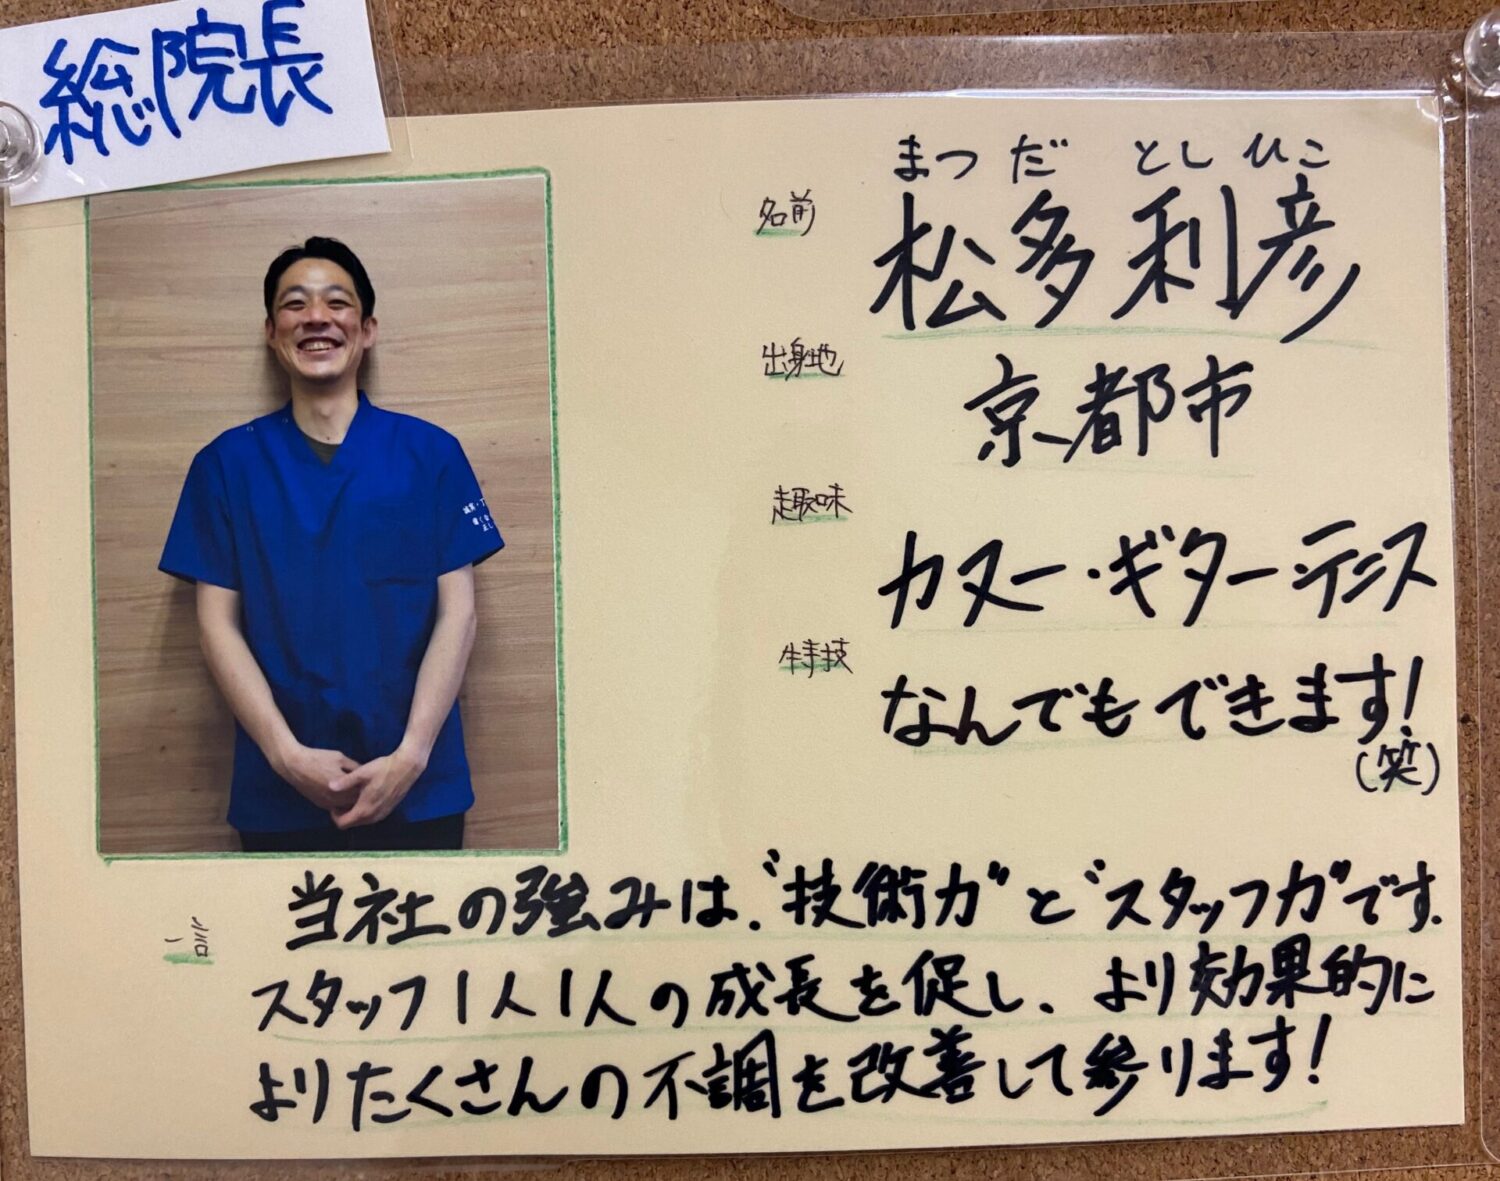 総院長
まつだ としひこ
名前 松多利彦
出身地 京都市
趣味 カヌー・ギター・テニス
特技 なんでもできます!
(笑)
一言 当社の強みは、"技術力"と"スタッフ力"です。
スタッフ1人1人の成長を促し、より効果的に
よりたくさんの不調を改善して参ります!